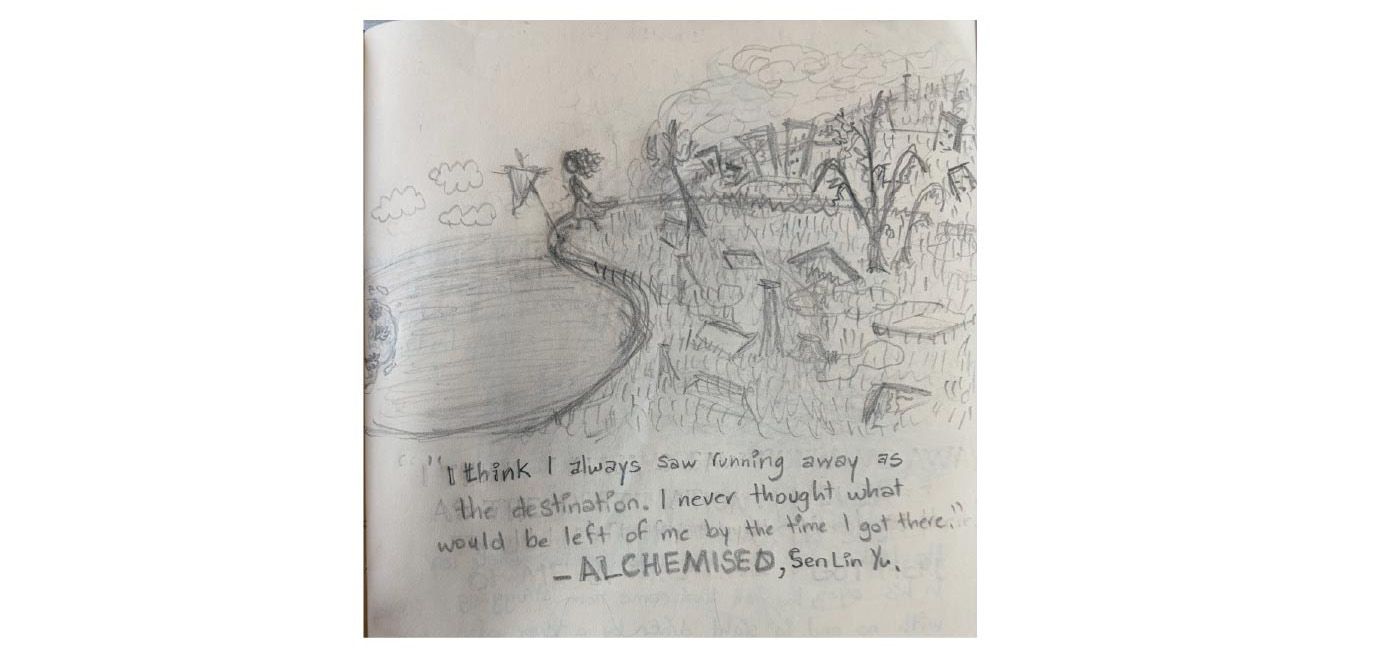 "I think I always saw running away as
the destination. I never thought what
would be left of me by the time I got there."
- ALCHEMISED, SenLin Yu.